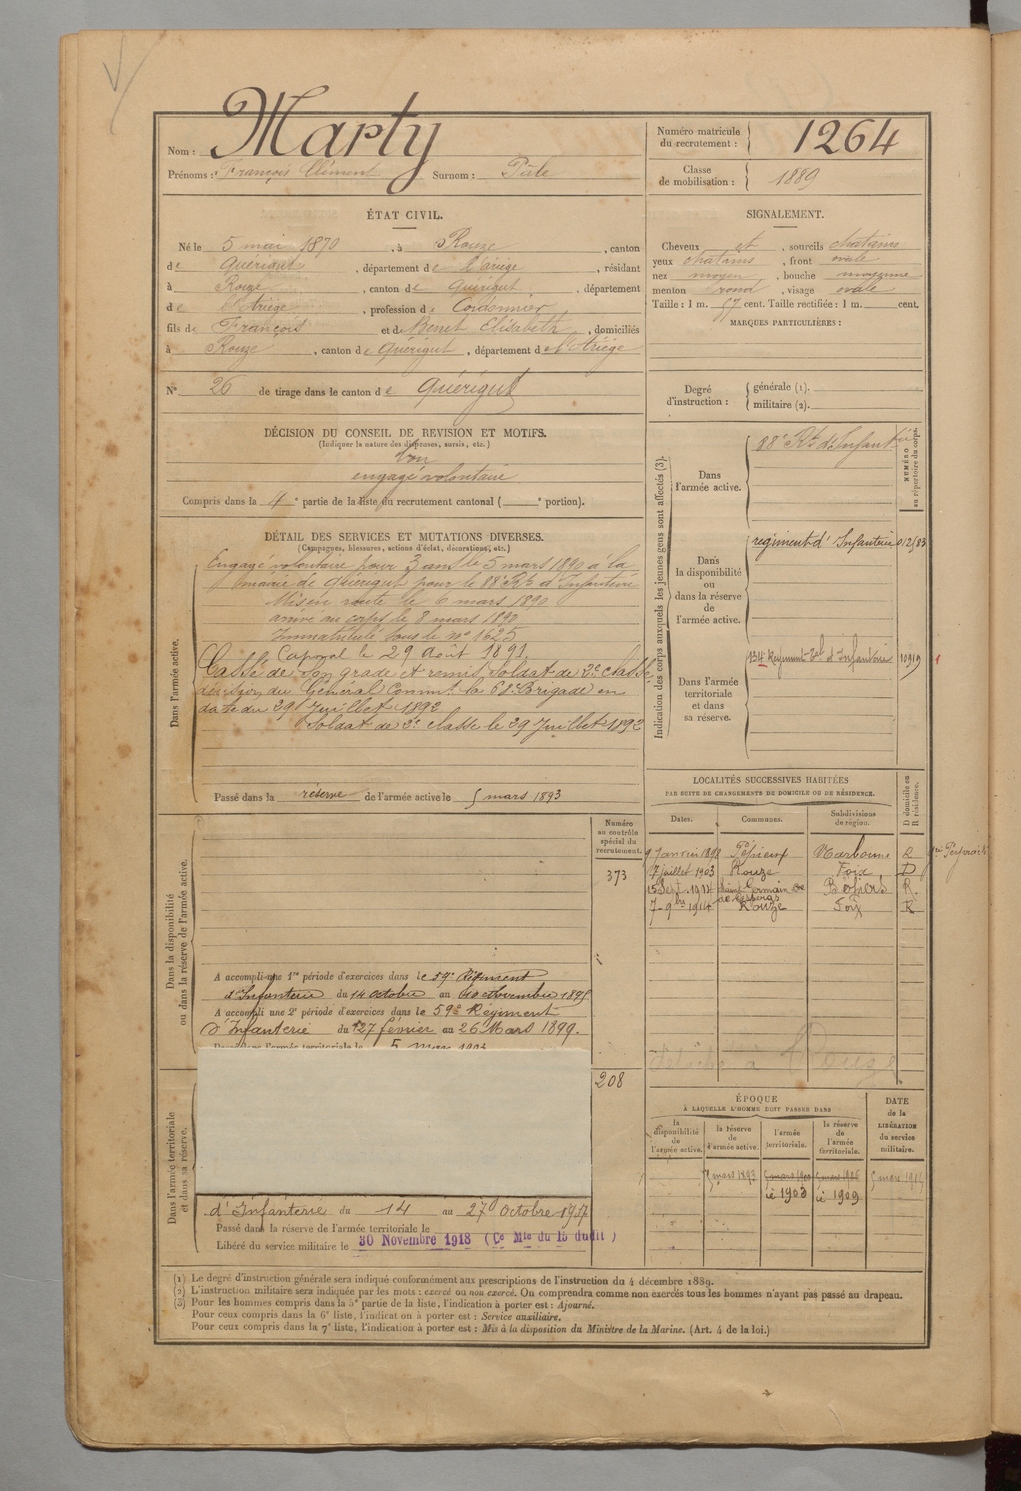 Nom : Marty
Prénoms : François Clément Surnom :
Numéro matricule du recrutement : 1264
Classe de mobilisation : 1889
ÉTAT CIVIL.
Né le 5 mai 1870, à Rouze, canton
de Quérigut, département de l'ariège, résidant
à Rouze, canton de Quérigut, département
de l'Ariège, profession de Cordonnier
fils de François et de Benet Elisabeth, domiciliés
à Rouze, canton de Quérigut, département de l'Ariège
N° 26 de tirage dans le canton de Quérigut
SIGNALEMENT.
Cheveux et, sourcils chatains
yeux chatains, front ovale
nez moyen, bouche moyenne
menton rond, visage ovale
Taille : 1 m. 57 cent. Taille rectifiée : 1 m. cent.
MARQUES PARTICULIÈRES :
Degré d'instruction : générale (1).
militaire (2).
DÉCISION DU CONSEIL DE REVISION ET MOTIFS.
(Indiquer la nature des dispenses, sursis, etc.)
bon
engagé volontaire
Compris dans la 4e partie de la liste du recrutement cantonal ( e portion).
DÉTAIL DES SERVICES ET MUTATIONS DIVERSES.
(Campagnes, blessures, actions d'éclat, décorations, etc.)
Dans l'armée active.
Engagé volontaire pour 3 ans le 5 mars 1890 à la
mairie de Quérigut pour le 88e Rt d'Infanterie
Mis en route le 6 mars 1890
arrivé au corps le 8 mars 1890
Immatriculé sous le no 1625
Caporal le 29 Août 1891.
Cassé de son grade et remis soldat de 2e classe
décision du Général Commt la 68e Brigade en
date du 29 Juillet 1892
Soldat de 2e classe le 29 Juillet 1892
Passé dans la réserve de l'armée active le 5 mars 1893
Indication des corps auxquels les jeunes gens sont affectés (3).
NUMÉRO au répertoire du corps.
Dans l'armée active.
88e Rt d'Infanterie
Dans la disponibilité ou dans la réserve de l'armée active.
regiment d'Infanterie
Dans l'armée territoriale et dans sa réserve.
134e Regiment Tal d'Infanterie
LOCALITÉS SUCCESSIVES HABITÉES
PAR SUITE DE CHANGEMENTS DE DOMICILE OU DE RÉSIDENCE.
D domicile ou R résidence.
Dates. Communes. Subdivisions de région.
9 Janvier 1898 Pépieux Narbonne R
7 juillet 1903 Rouze Foix D
15 Sept. 1914 Béziers R.
7 - 9bre 1914 Rouze Foix R
Dans la disponibilité ou dans la réserve de l'armée active.
Numéro au contrôle spécial du recrutement.
373
A accompli une 1re période d'exercices dans le 59e Régiment
d'Infanterie du 14 octobre au 10 Novembre 1895
A accompli une 2e période d'exercices dans le 59e Régiment
d'Infanterie du 27 février au 26 Mars 1899.
Passé dans l'armée territoriale le 5 mars 1903
208
Dans l'armée territoriale et dans sa réserve.
d'Infanterie du 14 au 27 Octobre
Passé dans la réserve de l'armée territoriale le
Libéré du service militaire le 30 Novembre 1918 (Ce Mle du 15 dudit)
ÉPOQUE
À LAQUELLE L'HOMME DOIT PASSER DANS
la disponibilité de l'armée active.
la réserve de l'armée active.
l'armée territoriale.
la réserve de l'armée territoriale.
DATE de la LIBÉRATION du service militaire.
5 mars 1893
1903 1909
(1) Le degré d'instruction générale sera indiqué conformément aux prescriptions de l'instruction du 4 décembre 1889.
(2) L'instruction militaire sera indiquée par les mots : exercé ou non exercé. On comprendra comme non exercés tous les hommes n'ayant pas passé au drapeau.
(3) Pour les hommes compris dans la 5e partie de la liste, l'indication à porter est : Ajourné.
Pour ceux compris dans la 6e liste, l'indication à porter est : Service auxiliaire.
Pour ceux compris dans la 7e liste, l'indication à porter est : Mis à la disposition du Ministre de la Marine. (Art. 4 de la loi.)